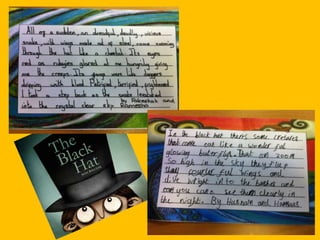 All of a sudden, an demented, deadly, vicious
snake with wings made out of steel, came swarming
through the hat like a Its eyes
red as rubies glared at me hungrily giving
me the creeps. Its were like daggers
dripping with blood. terrified, frightened
I took a step back as the snake
into the crystal clear sky. By and
The
Black
Hat
In the black hat there some creatures
that come out like a wonderful
glowing butterflys. That can zoom
so high in the sky they flap
their colourful wings and
dive bright in to the bushes and
you can see them clearly in
the night. By and